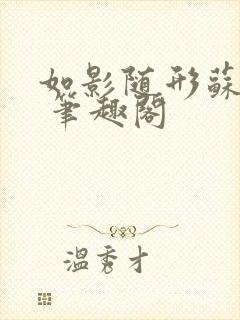 如影随形蘇
筆趣閣
溫秀才